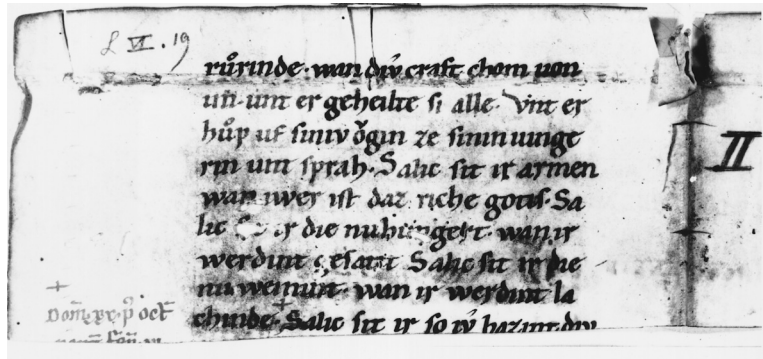 L VI. 19
růrinde · wan div craft chom uon
im · unt er geheilte si alle · Vnt er
hůp uf siniv ǒgin ze sinin iunge
rin unt sprah · Salic sit ir armen
wan iwer ist daz riche gotis · Sa
lic sit ir die nu hungert · wan ir
werdint gesatit Salic sit ir die
nu weinunt · wan ir werdint la
chinde · Salic sit ir so iv hazint div
II
Dom̄ · xx · p̄ oct̄